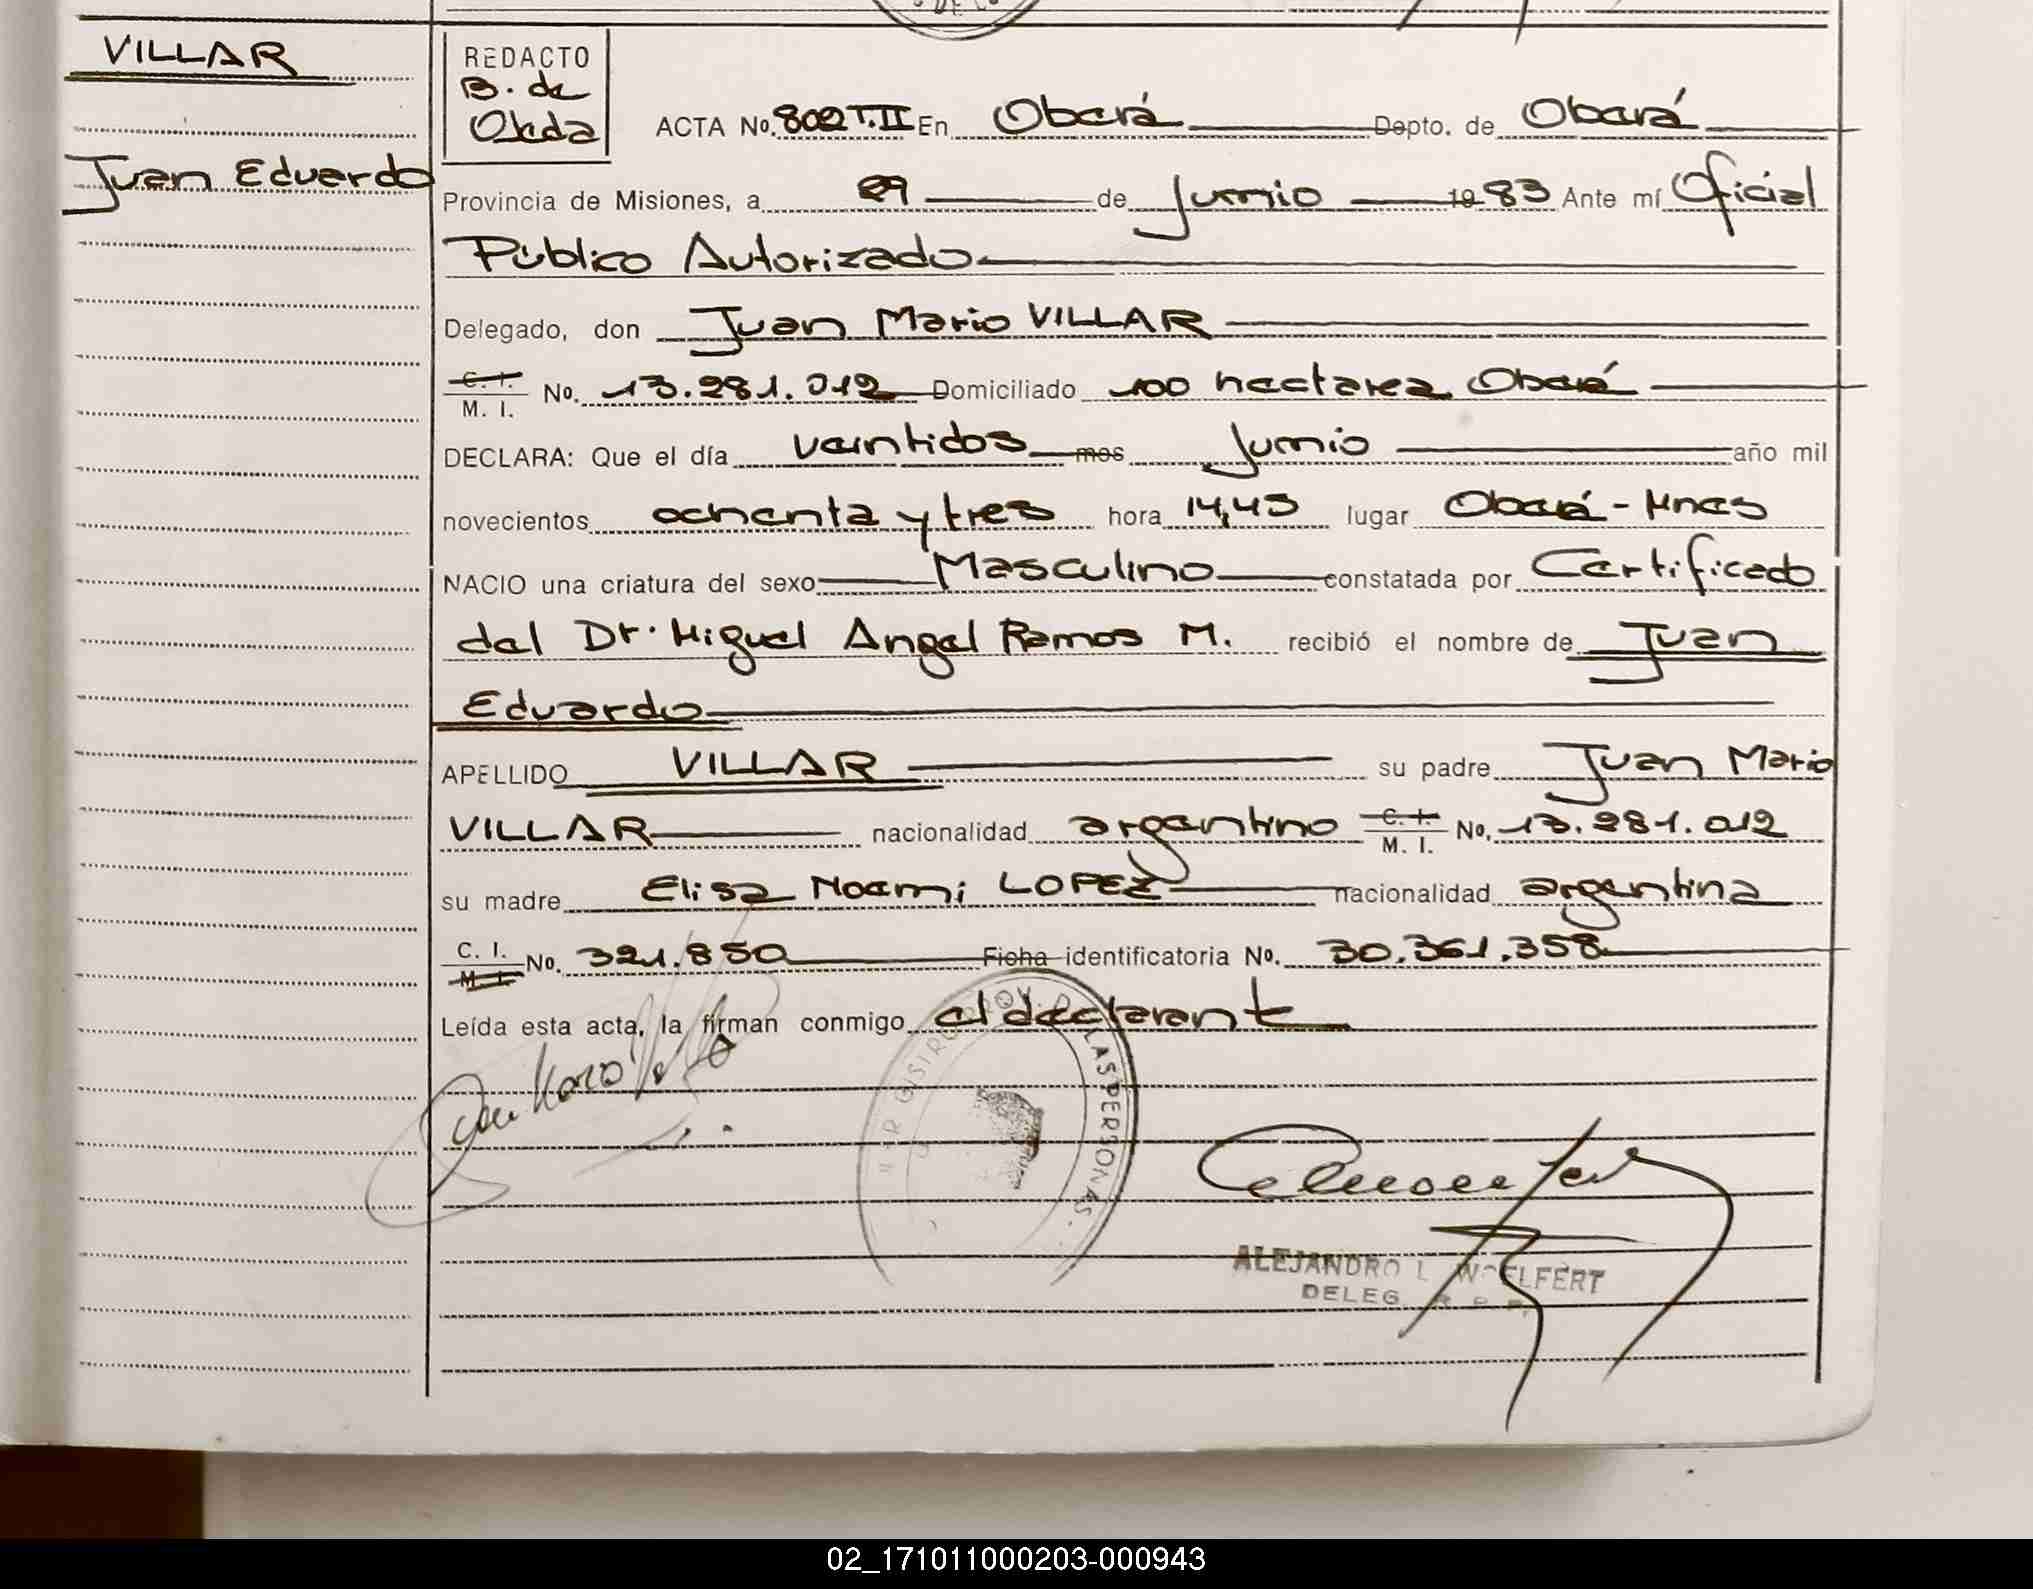 VILLAR
Juan Eduardo
REDACTO
B. de
Ojeda
ACTA No. 802 T.II En Oberá Depto. de Oberá
Provincia de Misiones, a 29 de Junio 1983 Ante mí Oficial
Público Autorizado
Delegado, don Juan Mario VILLAR
C. I. M. I. No. 13.281.012 Domiciliado 100 hectarea Oberá
DECLARA: Que el día veintidos mes Junio año mil
novecientos ochenta y tres hora 14,45 lugar Oberá - Mnes
NACIO una criatura del sexo Masculino constatada por Certificado
del Dr. Miguel Angel Ramos M. recibió el nombre de Juan
Eduardo
APELLIDO VILLAR su padre Juan Mario
VILLAR nacionalidad argentino C. I. M. I. No. 13.281.012
su madre Elisa Noemi LOPEZ nacionalidad argentina
C. I. M. I. No. 321.850 Ficha identificatoria No. 30.361.358
Leída esta acta, la firman conmigo el declarante
LAS PERSONAS.
ALEJANDRO L. WOELFERT
DELEG. R. P. P.
02_171011000203-000943